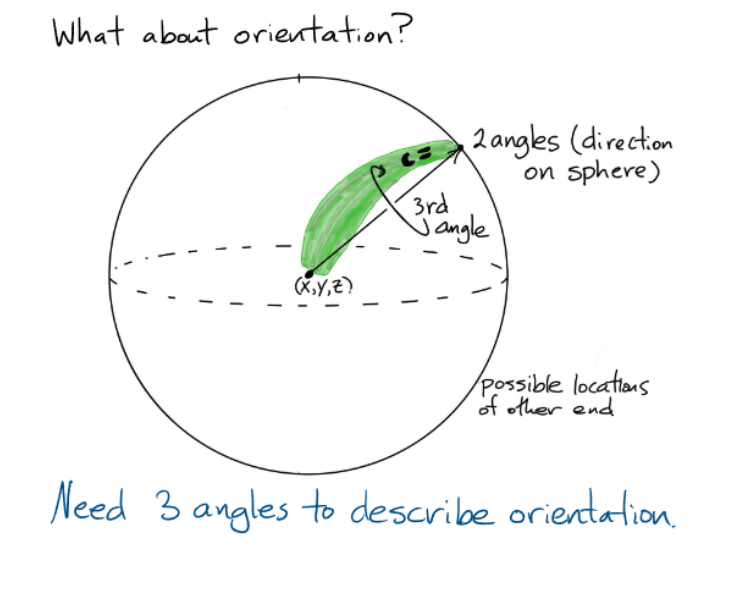 What about orientation?
2 angles (direction
on sphere)
3rd
angle
(x,y,z)
possible locations
of other end
Need 3 angles to describe orientation.